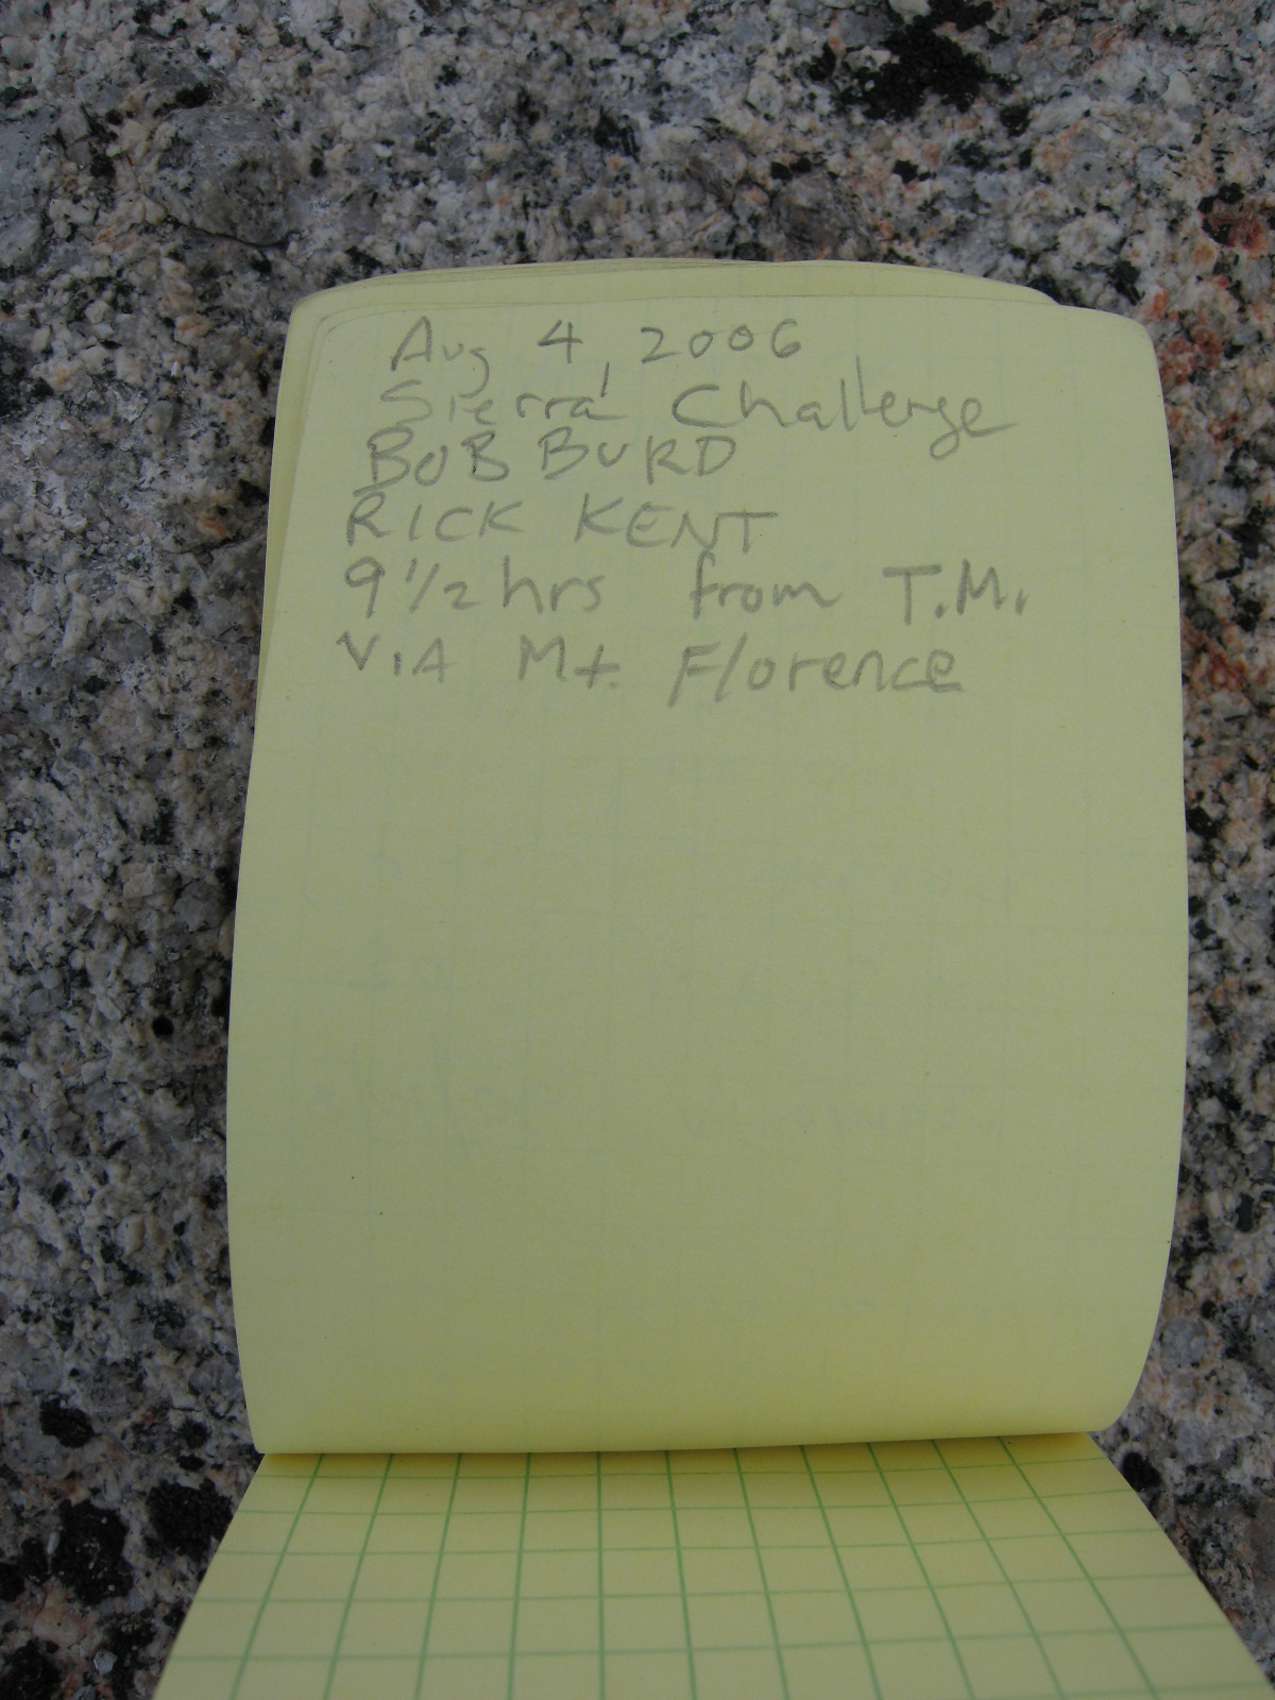 Aug 4, 2006
Sierra Challenge
BOB BURD
RICK KENT
9 1/2 hrs from T.M.
VIA Mt. Florence